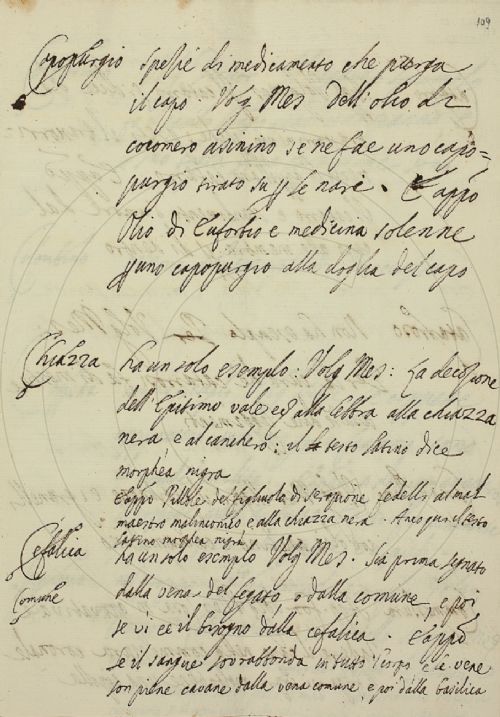 109
Capopurgio spezie di medicamento che purga
il capo. Volg Mes dell'olio di
cocomero asinino se ne fae uno capo=
purgio tirato su p le nare. E appo
Olio di Euforbio e medicina solenne
p uno capopurgio alla doglia del capo
Chiazza ha un solo esempio: Volg Mes: La decozione
dell'Epitimo vale alla lebbra alla chiazza
nera e al canchero: il testo latino dice
morphea nigra
E appo Pillole del figliuolo di serapione fedelli al mal
maestro malinconico e alla chiazza nera. Anco qui il testo
latino morphea nigra
Cefalica ha un solo esempio Volg Mes. Sia prima segnato
dalla vena del fegato, o dalla comune, e poi
Comune
se vi ee il bisogno dalla cefalica. E appo
se il sangue sovrabbonda in tutto l'corpo e le vene
son piene cavane dalla vena comune e poi dalla basilica